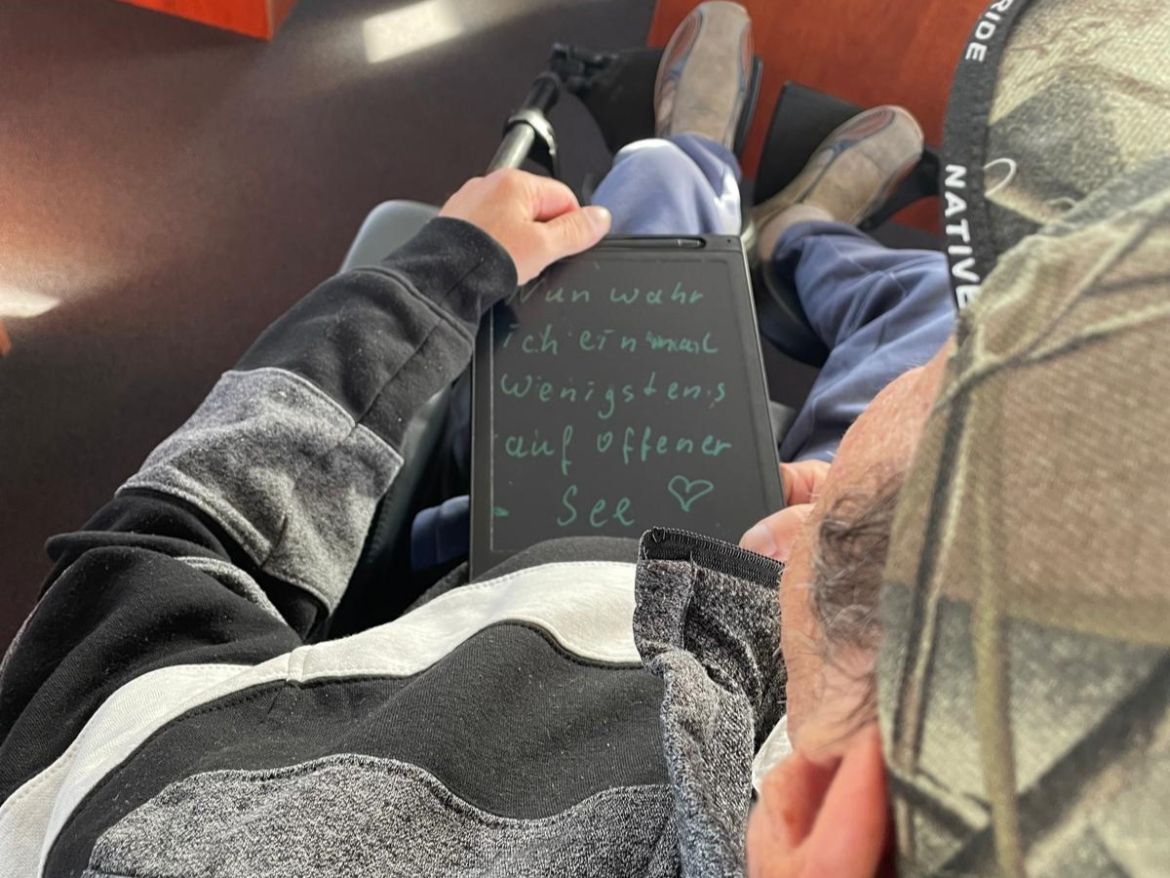 Nun wahr
ich einmal
wenigstens
auf offener
See ♡
RIDE
NATIVE